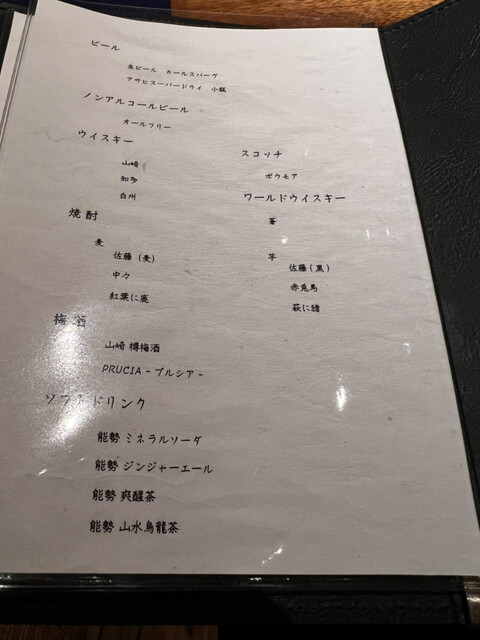 ビール
生ビール カールスバーグ
アサヒスーパードライ 小瓶
ノンアルコールビール
オールフリー
ウイスキー
山崎
知多
白州
スコッチ
ボウモア
ワールドウイスキー
碧
焼酎
麦
佐藤（麦）
中々
紅葉に鹿
芋
佐藤（黒）
赤兎馬
萩に猪
梅酒
山崎 樽梅酒
PRUCIA - プルシア -
ソフトドリンク
能勢 ミネラルソーダ
能勢 ジンジャーエール
能勢 爽醒茶
能勢 山水烏龍茶